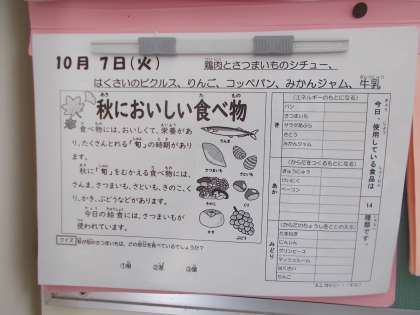 10月 7日(火)
鶏肉とさつまいものシチュー、
はくさいのピクルス、りんご、コッペパン、みかんジャム、牛乳
秋においしい食べ物
食べ物には、おいしくて、栄養があ
り、たくさんとれる「旬」の時期があり
ます。
秋に「旬」をむかえる食べ物には、
さんま、さつまいも、さといも、きのこ、く
り、かき、ぶどうなどがあります。
今日の給食には、さつまいもが
使われています。
さんま
さつまいも
くり
さといも
きのこ
かき
ぶどう
クイズ
①根 ②茎 ③葉
今日、使用している食品は
14
種類です。
き
(エネルギーのもとになる)
パン
さつまいも
サラダあぶら
さとう
みかんジャム
あか
(からだをつくるもとになる)
ぎゅうにゅう
けいにく
ベーコン
みどり
(からだのちょうしをととのえる)
たまねぎ
にんじん
グリンピース
マッシュルーム
はくさい
りんご